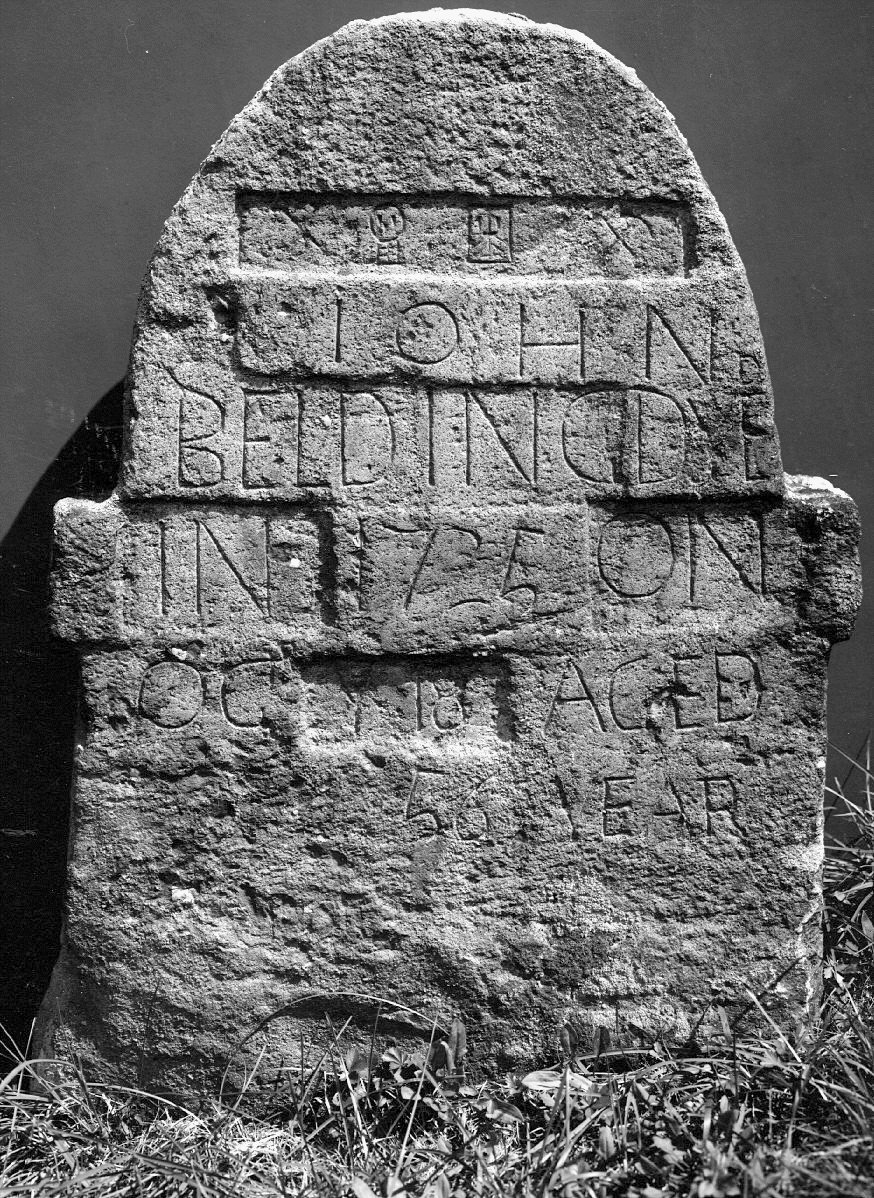 IOHN
BELDING DIED
IN 1725 ON
OCT Y 18 AGED
56 YEAR